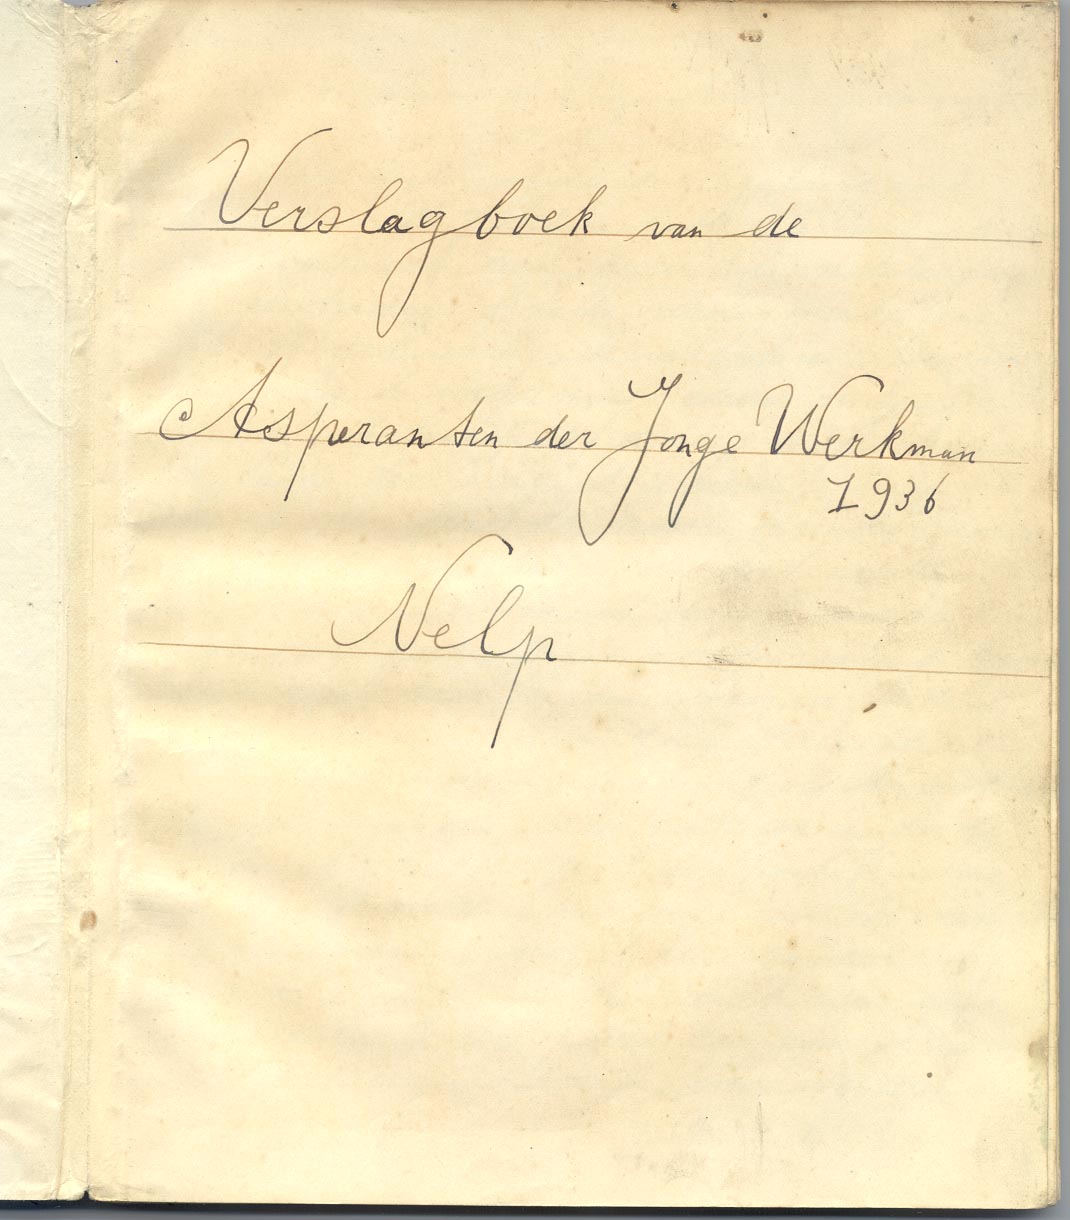 Verslagboek van de
Asperanten der Jonge Werkman
1936
Velp